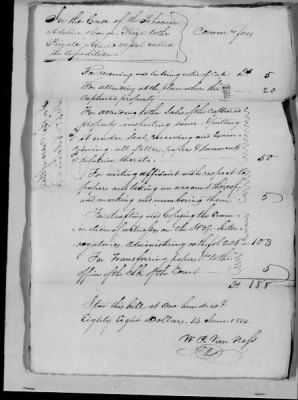 In the Case of the Schooner
Adeline Cargo Prize to the
Private Armed vessel called
the Expedition
Comrs fees
For receiving and entering order of Capt. Ds 5
For attending at the place where the
captured property 20
For attending to the Sales of the captured
property inspecting same & putting
it under seal, receiving and exam
ining all Letters, papers & documents
relative thereto. 50
For writing affidavit with respect to
papers and taking an account thereof
and marking and numbering them 5
For drafting and Copying the Exam
ination of witnesses on the Inter
rogatories Administering oaths 103
For Transferring papers to the
office of the Clk of the Court 5
Ds 188
I tax this bill at One hundred &
Eighty Eight Dollars. 14 June 1814
W. P. Van Ness